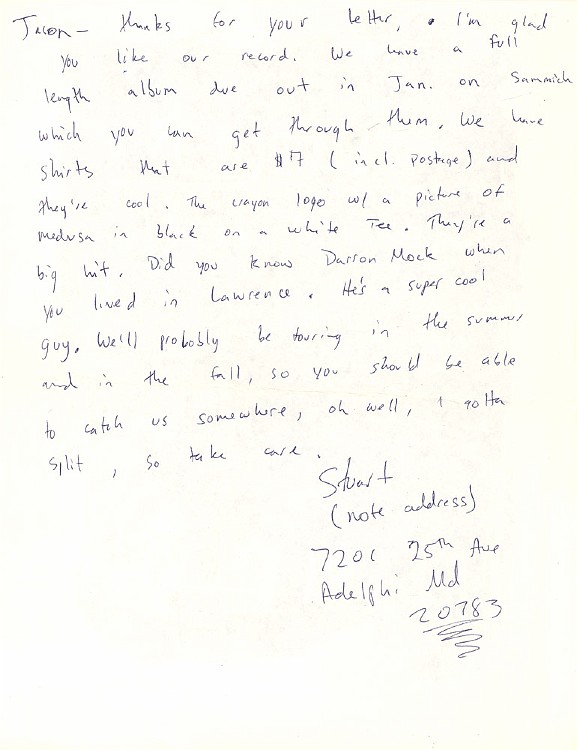 Jason - thanks for your letter, I'm glad
you like our record. We have a full
length album due out in Jan. on Sammich
which you can get through them. We have
shirts that are $7 (incl. postage) and
they're cool. The crayon logo w/ a picture of
medusa in black on a white Tee. They're a
big hit. Did you know Darron Mock when
you lived in Lawrence. He's a super cool
guy. We'll probably be touring in the summer
and in the fall, so you should be able
to catch us somewhere, oh well, I gotta
split, so take care.
Stuart
(note address)
7201 25th Ave
Adelphi Md
20783